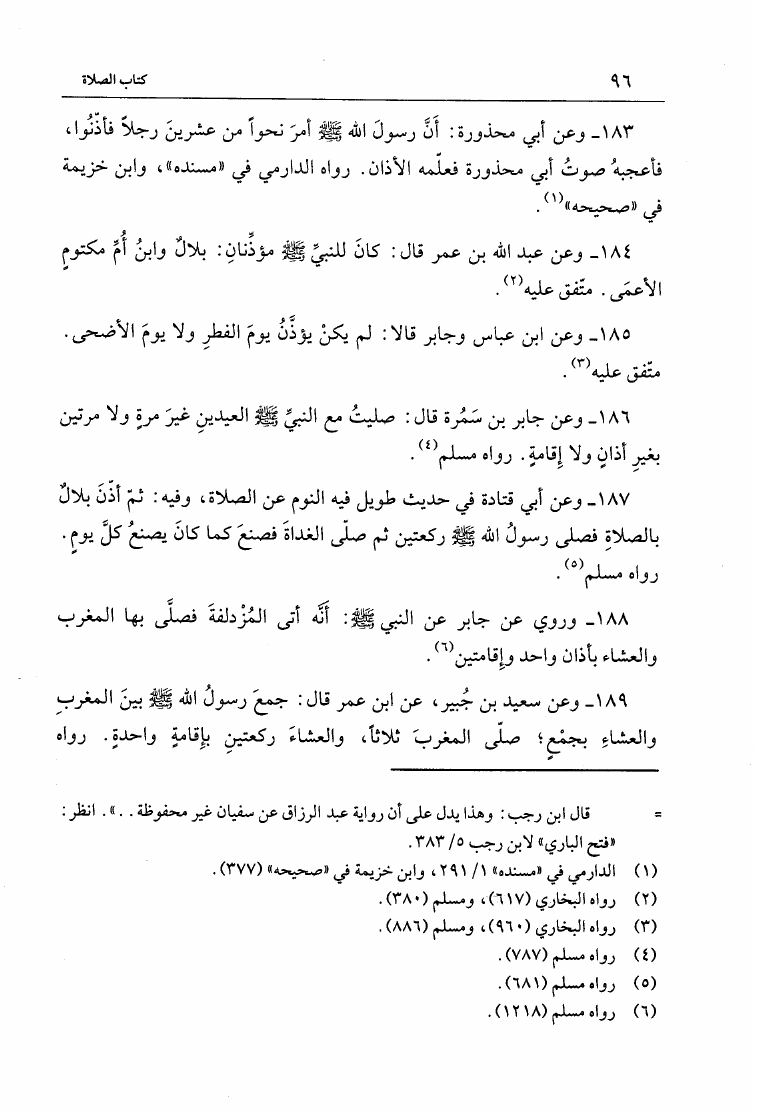 ٩٦ كتاب الصلاة
١٨٣ـ وعن أبي محذورة: أَنَّ رسولَ الله ﷺ أمرَ نحواً من عشرينَ رجلاً فأذَّنُوا،
فأعجبهُ صوتُ أبي محذورة فعلّمه الأذان. رواه الدارمي في «مسنده»، وابن خزيمة
في «صحيحه»(١).
١٨٤ـ وعن عبد الله بن عمر قال: كانَ للنبيِّ ﷺ مؤذِّنانِ: بلالٌ وابنُ أُمِّ مكتومٍ
الأعمَى. متّفق عليه(٢).
١٨٥ـ وعن ابن عباس وجابر قالا: لم يكنْ يؤذَّنُ يومَ الفطرِ ولا يومَ الأضحى.
متّفق عليه(٣).
١٨٦ـ وعن جابر بن سَمُرة قال: صليتُ مع النبيِّ ﷺ العيدينِ غيرَ مرةٍ ولا مرتين
بغيرِ أذانٍ ولا إقامةٍ. رواه مسلم(٤).
١٨٧ـ وعن أبي قتادة في حديث طويل فيه النوم عن الصلاة، وفيه: ثمّ أذّنَ بلالٌ
بالصلاةِ فصلى رسولُ الله ﷺ ركعتين ثم صلّى الغداةَ فصنعَ كما كانَ يصنعُ كلَّ يومٍ.
رواه مسلم(٥).
١٨٨ـ وروي عن جابر عن النبي ﷺ: أنَّه أتى المُزْدلفةَ فصلَّى بها المغرب
والعشاء بأذان واحد وإقامتين(٦).
١٨٩ـ وعن سعيد بن جُبير، عن ابن عمر قال: جمعَ رسولُ الله ﷺ بينَ المغربِ
والعشاءِ بجمْعٍ؛ صلّى المغربَ ثلاثاً، والعشاءَ ركعتينِ بإقامةٍ واحدةٍ. رواه
= قال ابن رجب: وهذا يدل على أن رواية عبد الرزاق عن سفيان غير محفوظة . .». انظر:
«فتح الباري» لابن رجب ٥/ ٣٨٣.
(١) الدارمي في «مسنده» ١/ ٢٩١، وابن خزيمة في «صحيحه» (٣٧٧).
(٢) رواه البخاري (٦١٧)، ومسلم (٣٨٠).
(٣) رواه البخاري (٩٦٠)، ومسلم (٨٨٦).
(٤) رواه مسلم (٧٨٧).
(٥) رواه مسلم (٦٨١).
(٦) رواه مسلم (١٢١٨).